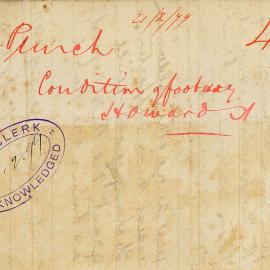 21/2/99
Punch 4
Condition of footway
Howard St
CLERK
.2.99
KNOWLEDGED"